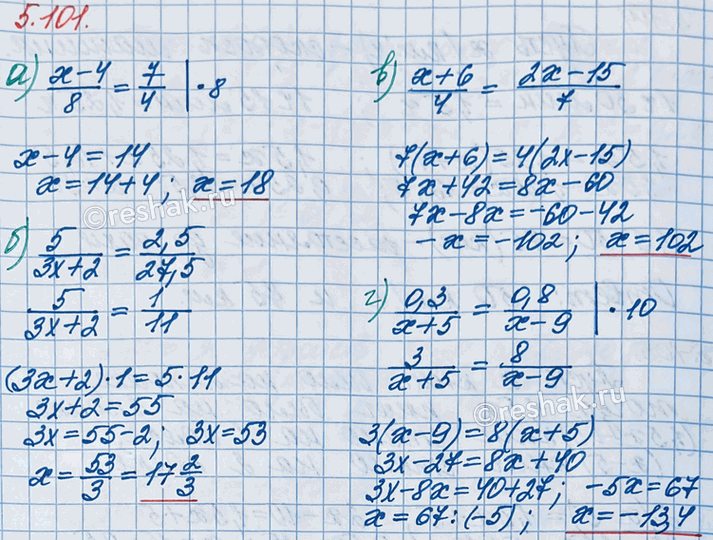 5.101.
а) (x-4)/8 = 7/4 | · 8
x-4 = 14
x = 14+4 ; x = 18
б) 5/(3x+2) = 2,5/27,5
5/(3x+2) = 1/11
(3x+2)·1 = 5·11
3x+2 = 55
3x = 55-2 ; 3x = 53
x = 53/3 = 17 2/3
в) (x+6)/4 = (2x-15)/7
7(x+6) = 4(2x-15)
7x+42 = 8x-60
7x-8x = -60-42
-x = -102 ; x = 102
г) 0,3/(x+5) = 0,8/(x-9) | · 10
3/(x+5) = 8/(x-9)
3(x-9) = 8(x+5)
3x-27 = 8x+40
3x-8x = 40+27 ; -5x = 67
x = 67:(-5) ; x = -13,4
©reshak.ru
©reshak.ru